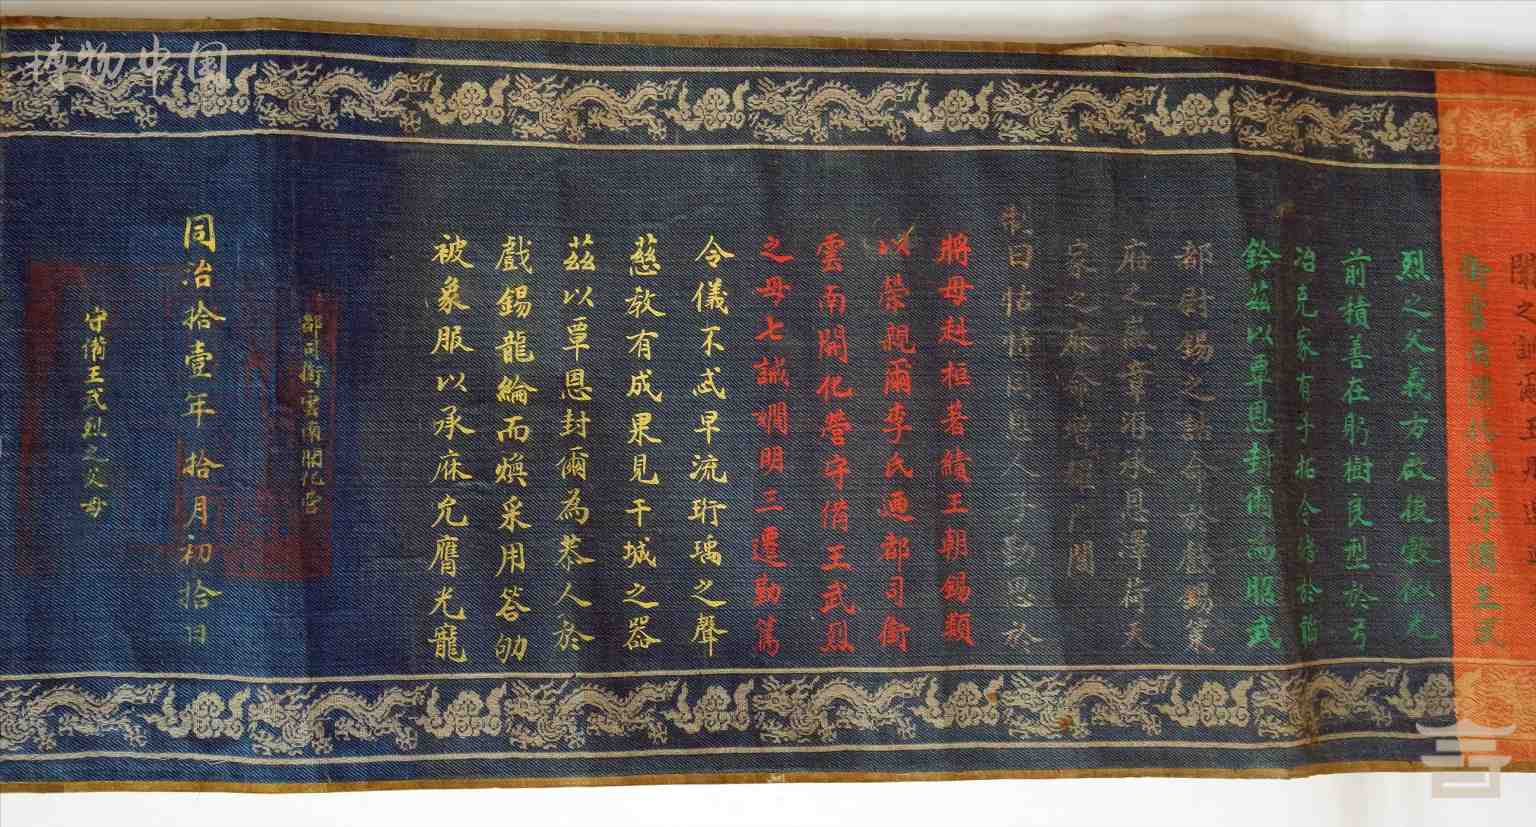 之誠爾王
銜雲南開化營守備王武
烈之父義方啟後穀似光
前積善在躬樹良型於弓
冶克家有子拓令緒於韜
鈐茲以覃恩封爾為昭武
都尉錫之誥命於戲錫策
府之徽章洊承恩澤荷天
家之庥命增耀門閭
制曰怙恃同恩人子勤思於
將母赳桓著績王朝錫類
以榮親爾李氏迺都司銜
雲南開化營守備王武烈
之母七誡嫺明三遷勤篤
令儀不忒早流珩瑀之聲
慈教有成果見干城之器
茲以覃恩封爾為恭人於
戲錫龍綸而煥采用答劬
被象服以承庥允膺光寵
都司銜雲南開化營
同治拾壹年拾月初拾日
守備王武烈之父母
博物中国